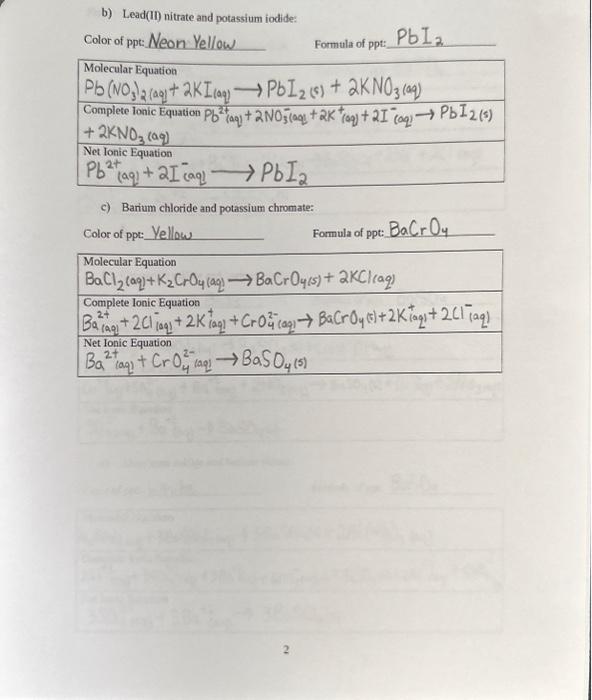 b) Lead(II) nitrate and potassium iodide:
Color of ppt: Neon Yellow Formula of ppt: PbI₂
Molecular Equation
Pb(NO₃)₂(aq) + 2KI(aq) → PbI₂(s) + 2KNO₃(aq)
Complete Ionic Equation Pb²⁺(aq) + 2NO₃⁻(aq) + 2K⁺(aq) + 2I⁻(aq) → PbI₂(s)
+ 2KNO₃(aq)
Net Ionic Equation
Pb²⁺(aq) + 2I⁻(aq) → PbI₂
c) Barium chloride and potassium chromate:
Color of ppt: Yellow Formula of ppt: BaCrO₄
Molecular Equation
BaCl₂(aq) + K₂CrO₄(aq) → BaCrO₄(s) + 2KCl(aq)
Complete Ionic Equation
Ba²⁺(aq) + 2Cl⁻(aq) + 2K⁺(aq) + CrO₄²⁻(aq) → BaCrO₄(s) + 2K⁺(aq) + 2Cl⁻(aq)
Net Ionic Equation
Ba²⁺(aq) + CrO₄²⁻(aq) → BaSO₄(s)
2